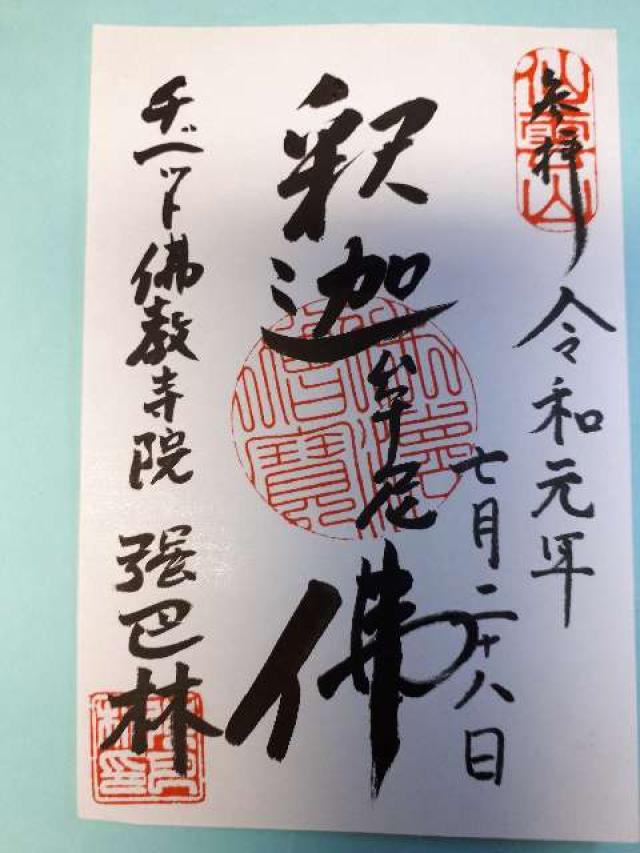 参拝
令和元年
七月二十八日
釈迦牟尼佛
チベット佛教寺院
強巴林